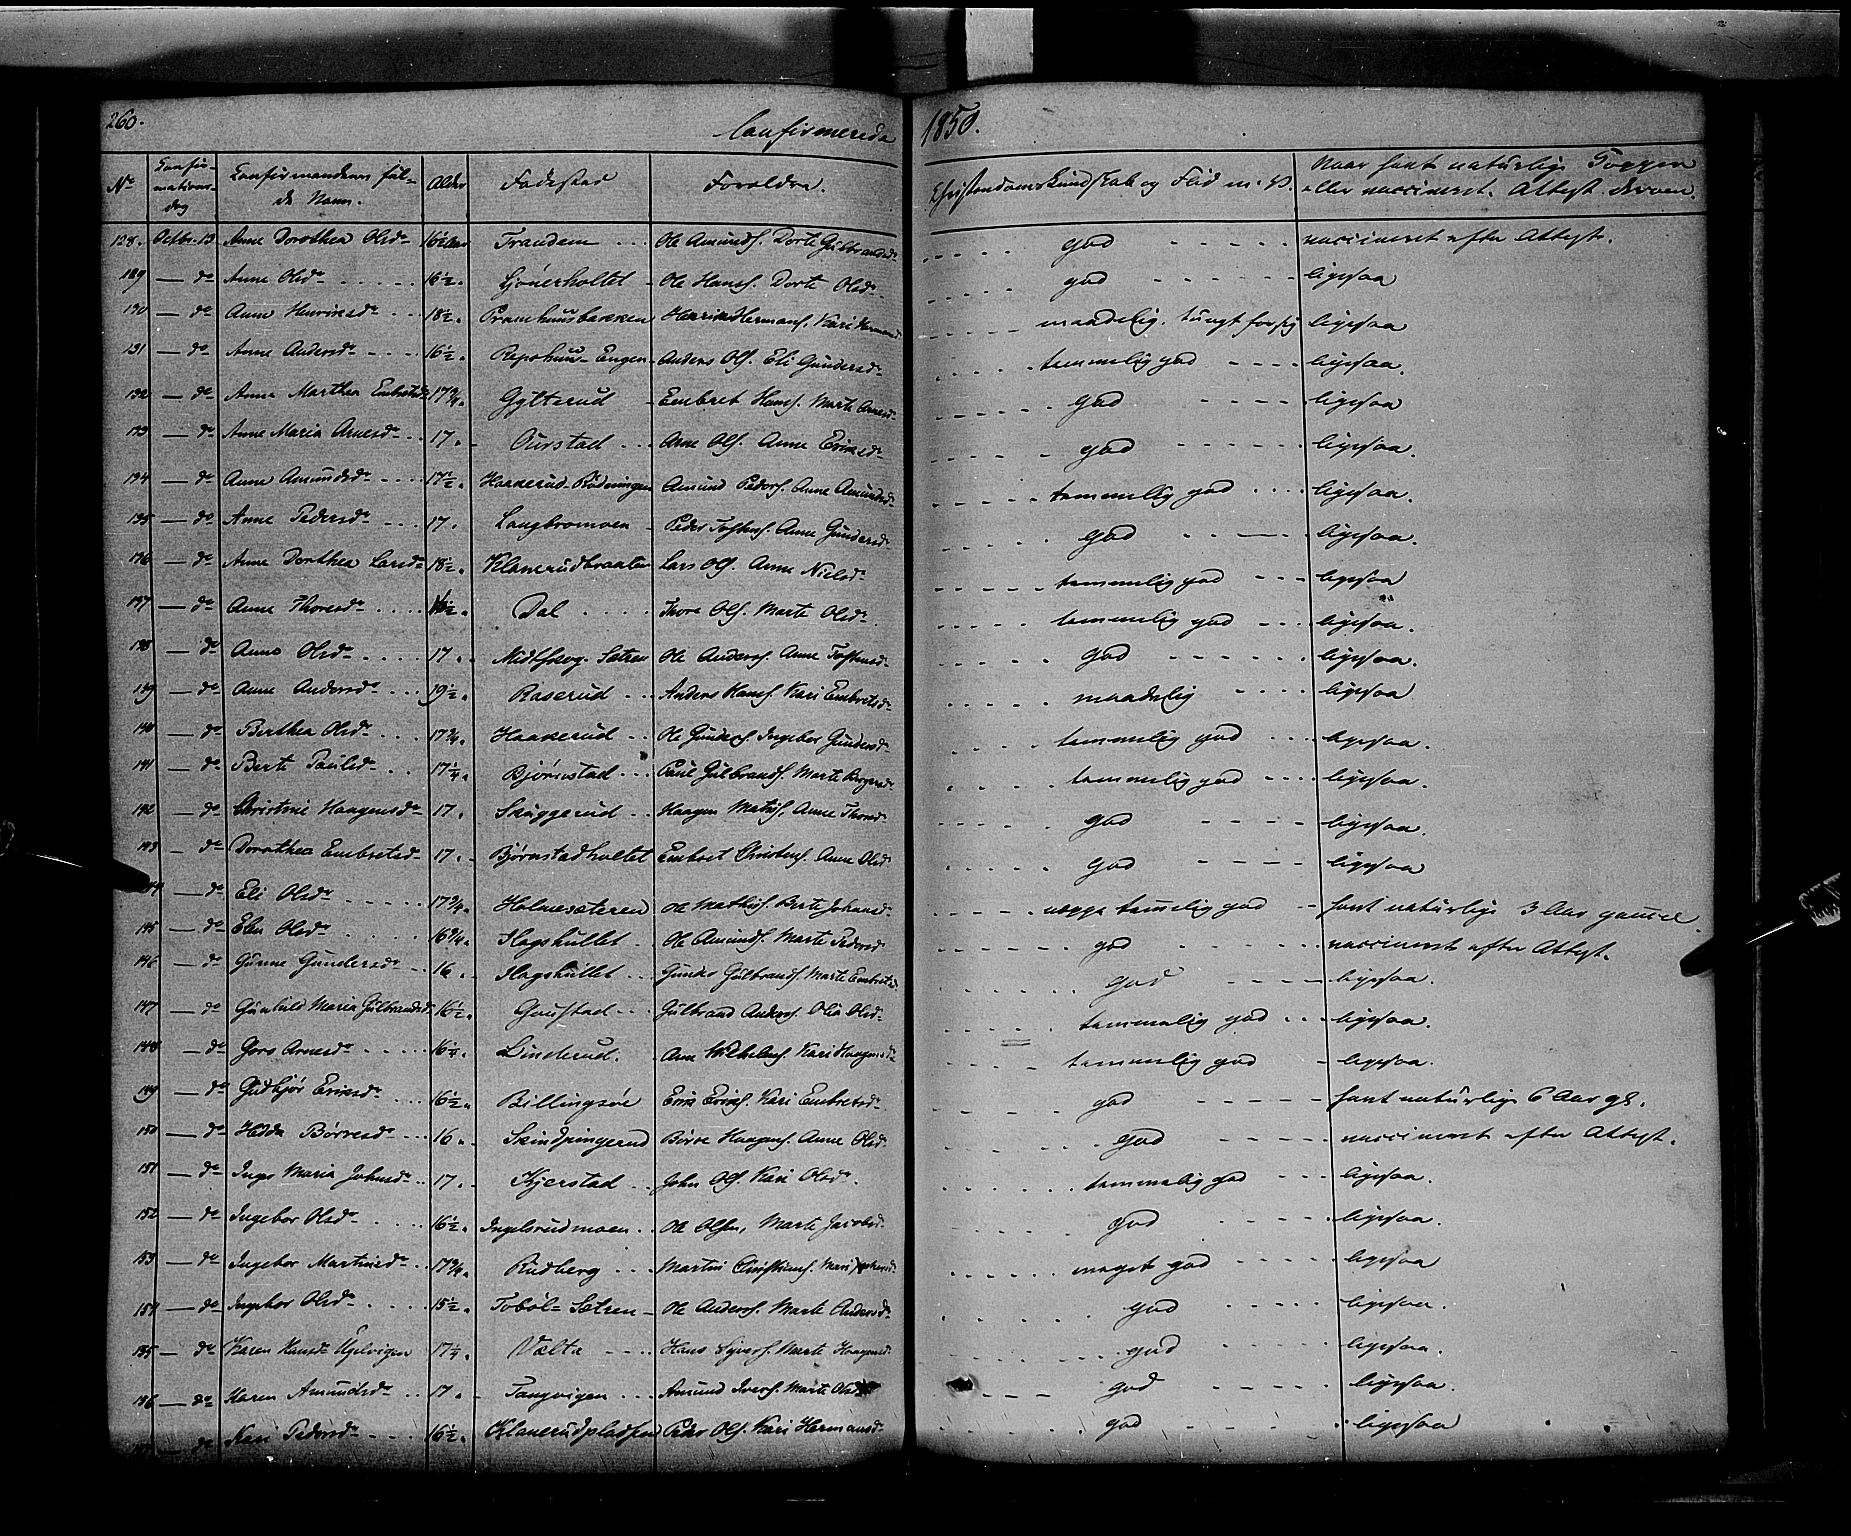 260.
Confirmerede
1850.
No Confirmationsdag Confirmandens fulde Navn. Alder Fødested Forældre. Christendoms Kundskab og Flid m. v. Naar havt naturlige Kopper eller vaccineret. Attest derom.
128. Octbr. 13 Anne Dorothea Olsdr 16½ Aar Trandem Ole Amunds. Dorte Gulbrandsdr god vaccineret efter Attest.
129 — do Anne Olsdr 16½ Ole Hans. Dorte Olsdr god ligesaa
130 — do Anne Henriksdr 18½ Pramhuusbakken Henrik Hermans. Kari maadelig. tungt ligesaa
131 — do Anne Andersdr 16½ Repshuus-Engen Anders Ols. Eli Gundersd temmelig god ligesaa.
132 — do Anne Marthea Embretsd 17¾ Gytterud Embret Hans. Marte Arnesd god ligesaa
133 — do Anne Maria Arnesdr 17 Ourstad Arne Ols. Anne Eriksdr god ligesaa.
134 — do Anne Amundsdr 17½ Haakerud-Rødningen Amund Peders. Anne Amundsd temmelig god ligesaa.
135 — do Anne Pedersdr 17 Langbromoen Peder Tostens. Anne Gundersd god ligesaa.
136 — do Anne Dorthea Larsdr 18½ Klanerudbraaten Lars Ols. Anne Nielsdr temmelig god ligesaa
137 — do Anne Thoresdr Dal Thore Ols. Marte Olsdr temmelig god ligesaa.
138 — do Anne Olsdr 17 Midtskog-Setren Ole Anders. Anne Tostensdr god ligesaa.
139 — do Anne Andersdr 19½ Raserud Anders Hans. Kari Embretsdr maadelig ligesaa
140 — do Berthea Olsdr 17¾ Haakerud Ole Gunders. Ingebor Gundersdr temmelig god ligesaa.
141 — do Berte Paulsdr 17¼ Bjørnstad Paul Gulbrands. Marte temmelig god ligesaa.
142 — do Christine Haagensdr 17 Skuggerud Haagen Mathis. Anne Thorsd god ligesaa.
143 — do Dorothea Embretsdr 17 Bjørnstadholtet Embret Christens. Anne Olsd god ligesaa
144 — do Eli Olsdr 17¾ Holmesæteren Ole Mathis. Berte Johansd neppe temelig god havt naturlige 3 Aar gamel
145 — do Elen Olsdr 16¾ Hagshullet Ole Amunds. Marte Pedersd god vaccineret efter Attest.
146 — do Gunne Gundersdr 16 Hagshullet Gunder Gulbrands. Marte Embretsd god ligesaa.
147 — do Gunhild Maria Gulbrandsd 16½ Goustad Gulbrand Anders. Olia Olsdr temmelig god ligesaa.
148 — do Goro Arnesdr 16¼ Linderud. Arne Wilhelms. Kari Haagensd temmelig god ligesaa.
149 — do Gudbjør Eriksdr 16½ Billingsøe Erik Eriks. Kari Embretsdr god havt naturlige 6 Aar gl.
150 — do Hedda Børresdr 16 Skindpungerud Børre Haagens. Anne Olsd god vaccineret efter Attest.
151 — do Inge Maria Johnsdr 17 Kjerstad John Ols. Kari Olsdr temmelig god ligesaa.
152 — do Ingebor Olsdr 16½ Ingelsrudmoen Ole Olsen, Marte Jacobsd god ligesaa.
153 — do Ingebor Martinsdr 17¾ Rudberg Martin Christians. Mari meget god ligesaa
154 — do Ingebor Olsdr 15½ Tobøl-Setren Ole Anders. Marte Andersdr god ligesaa.
155 — do Karen Hansdr Ugelvigen 17¼ Vælta Hans Syvers. Marte Haagensd god ligesaa.
156 — do Karen Amundsdr 17 Tangvigen Amund Ivers. Marte Olsdr god ligesaa.
157 — do Kari Pedersdr 16½ Klanerudpladsen Peder Ols. Kari Hermansdr god ligesaa